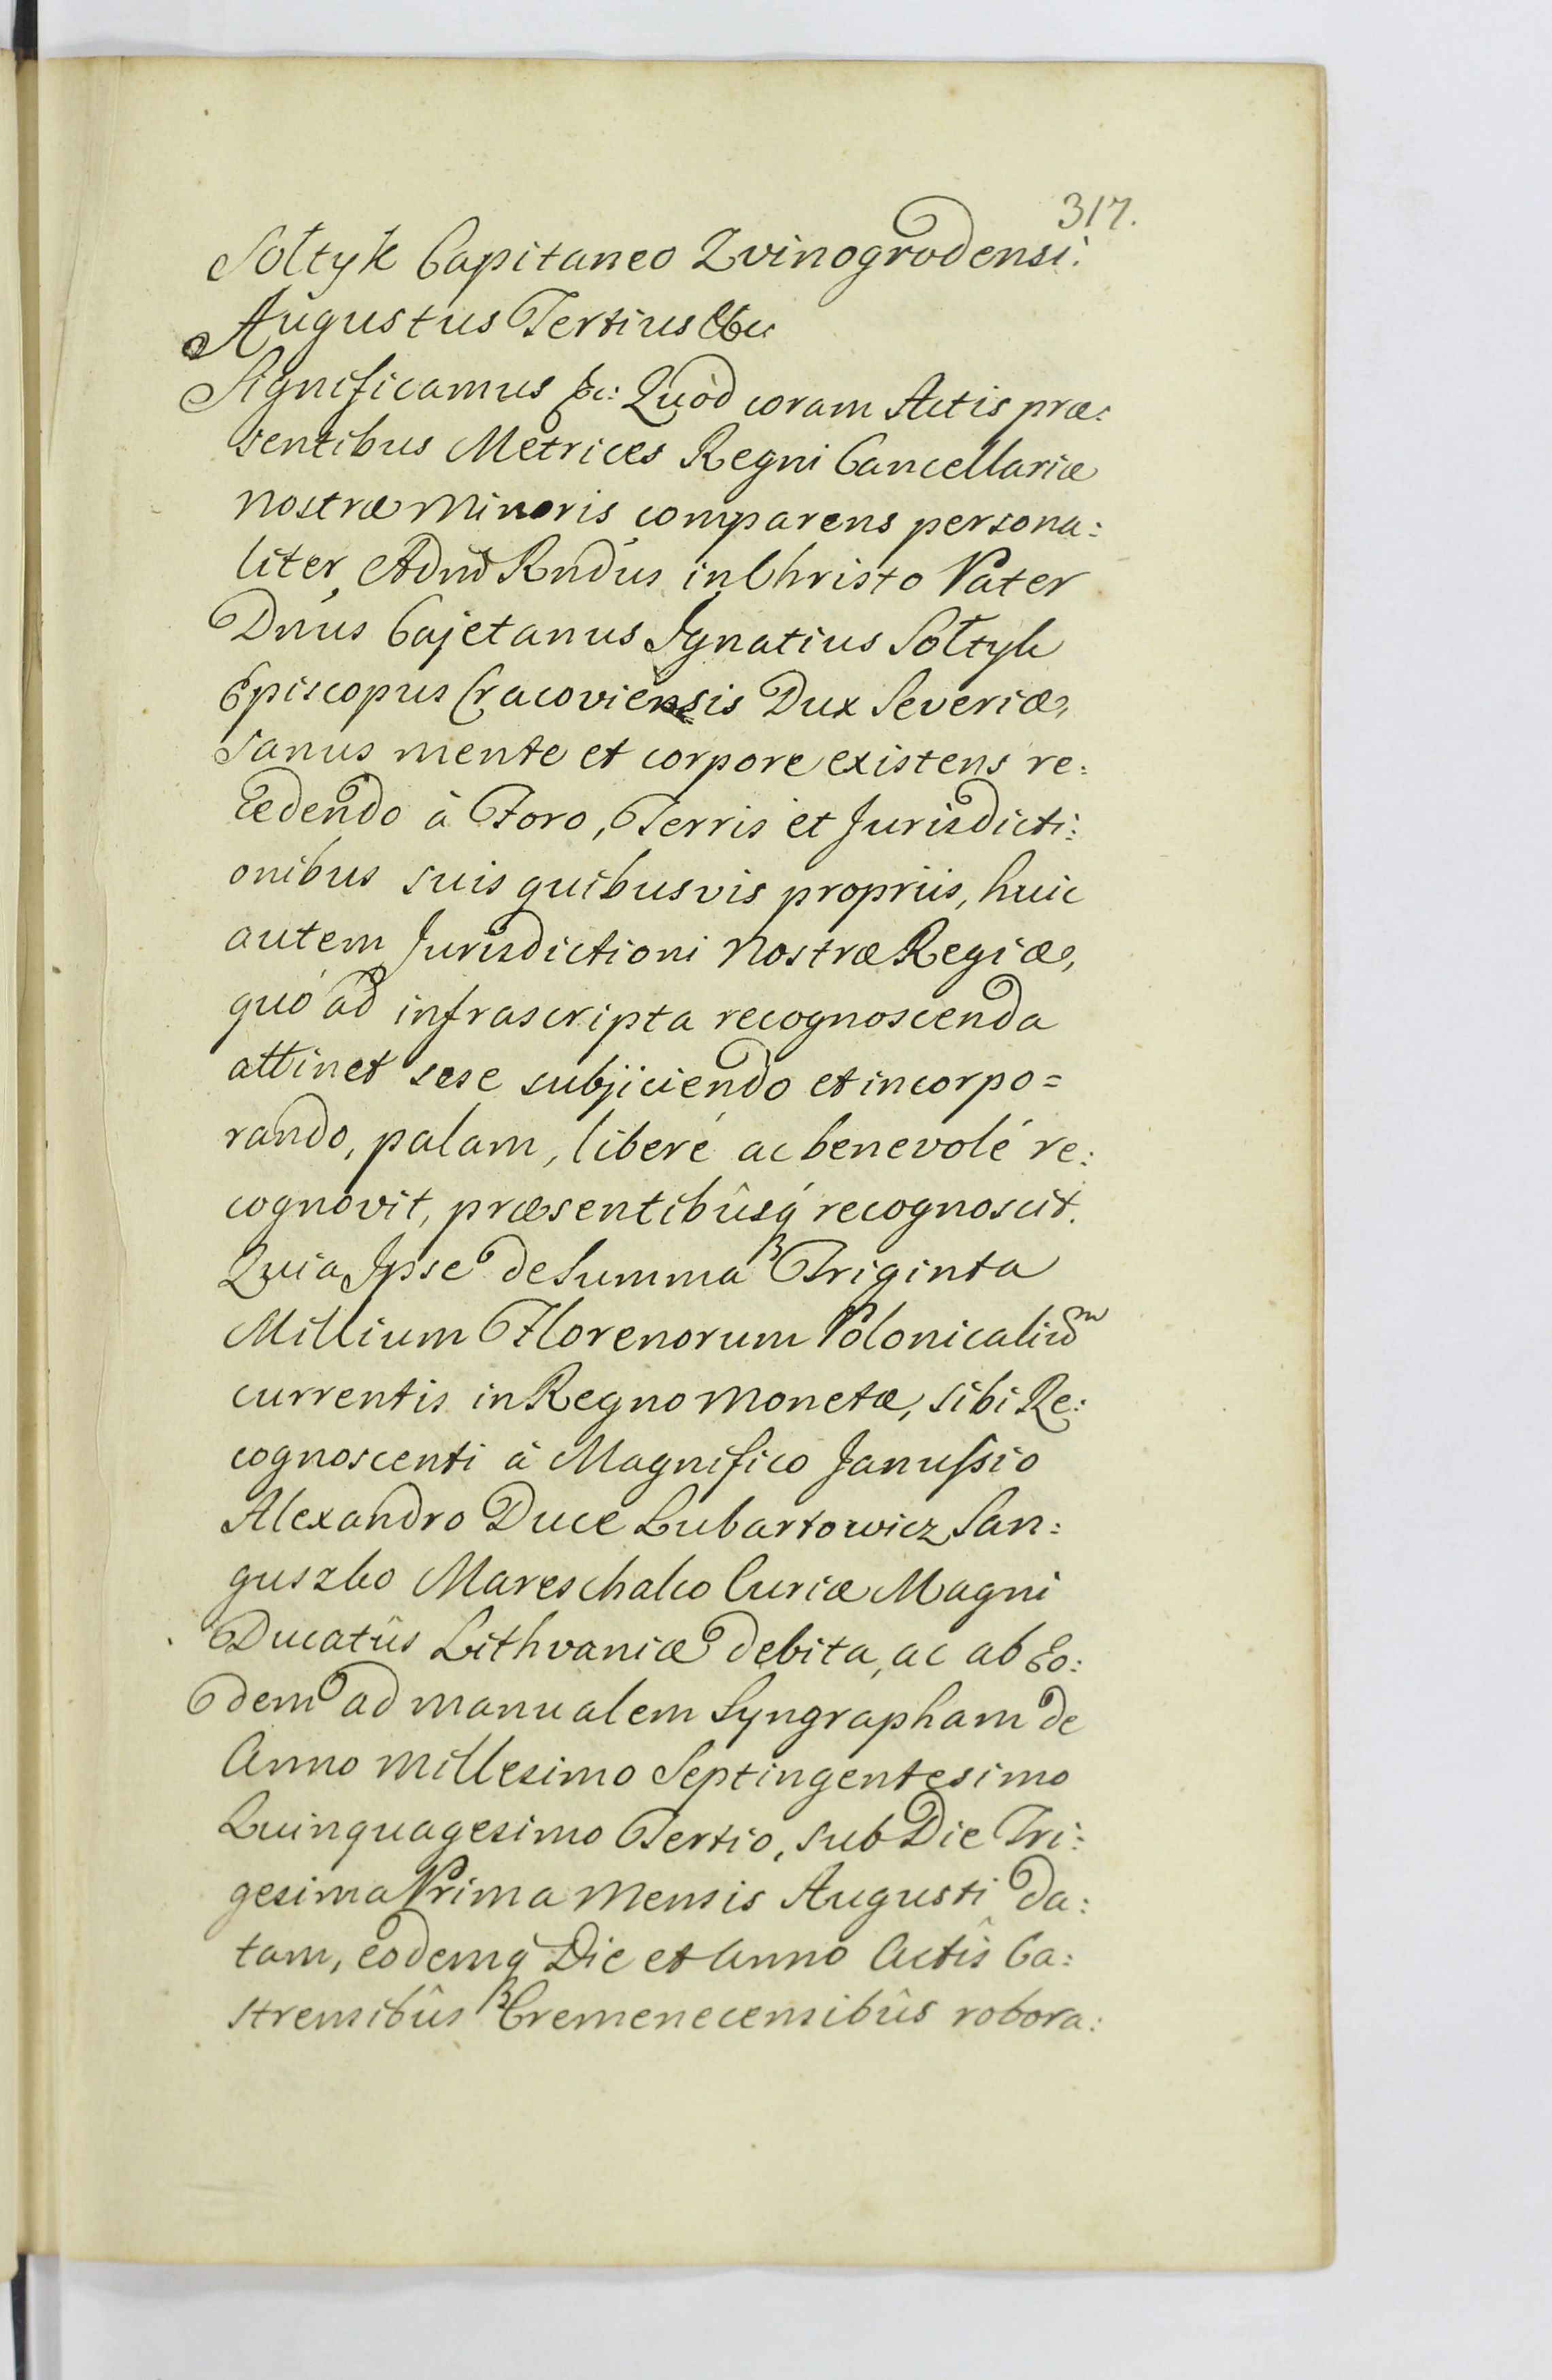 317.
Sołtyk Capitaneo Zvinogrodensi.
Augustus Tertius &c
Significamus &c: Quòd coram Actis præ:
sentibus Metrices Regni Cancellariæ
nostræ Minoris comparens persona:
liter Adnd Rndus in Christo Pater
Dnus Cajetanus Ignatius Sołtyk
Episcopus Cracoviensis Dux Severiæ,
sanus mente et corpore existens re:
cedendo à Foro, Terris et Jurisdicti:
onibus suis quibusvis propriis, huic
autem Jurisdictioni nostræ Regiæ,
quo ad infrascripta recognoscenda
attinet sese subjiciendo et incorpo=
rando, palam, liberé ac benevolé re:
cognovit, præsentibûsq́ recognoscit.
Quia Ipse de Summa Triginta
Millium Florenorum Polonicaliu͠m
currentis in Regno monetæ, sibi Re:
cognoscenti à Magnifico Janussio
Alexandro Duce Lubartowicz San:
guszko Mareschalco Curiæ Magni
Ducatûs Lithvaniæ debita, ac ab Eo:
dem ad manualem Syngrapham de
Anno Millesimo Septingentesimo
Quinquagesimo Tertio, sub Die Tri:
gesima Prima Mensis Augusti da:
tam, eodemq́ Die et Anno Actis Ca:
strensibûs Cremenecensibûs robora: